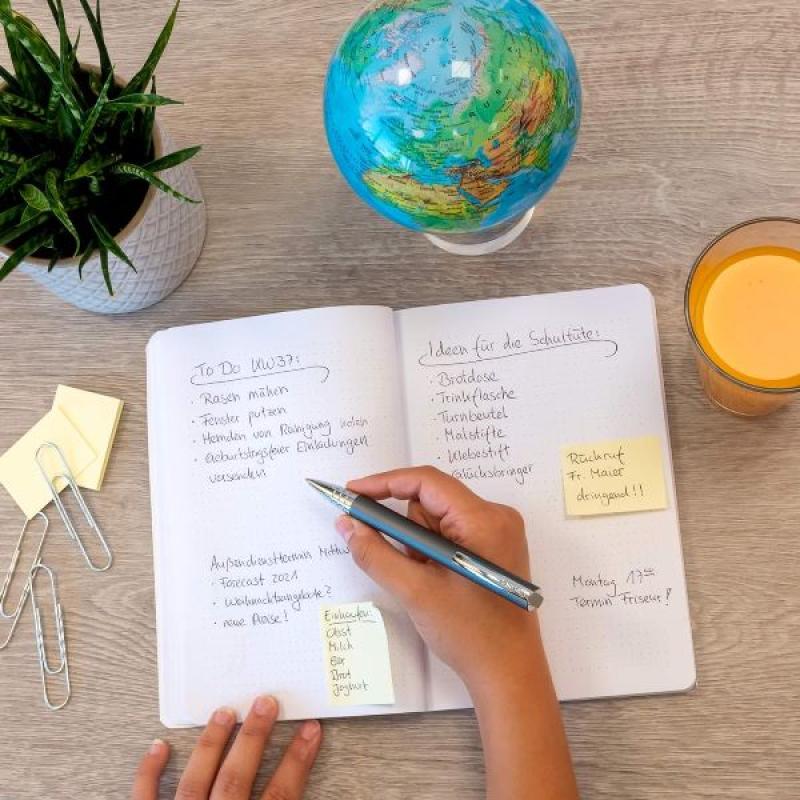 To Do KW37:
· Rasen mähen
· Fenster putzen
· Hemden von Reinigung holen
· Geburtstagsfeier Einladungen
versenden
Außendiensttermin
· Forecast 2021
· Weihnachtsangebote?
· neue Preise!
Einkaufen:
Obst
Milch
Eier
Brot
Joghurt
Ideen für die Schultüte:
· Brotdose
· Trinkflasche
· Turnbeutel
· Malstifte
· Klebestift
Glücksbringer
Rückruf
Fr. Maier
dringend!!
Montag 17⁰⁰
Termin Friseur!
RUSS